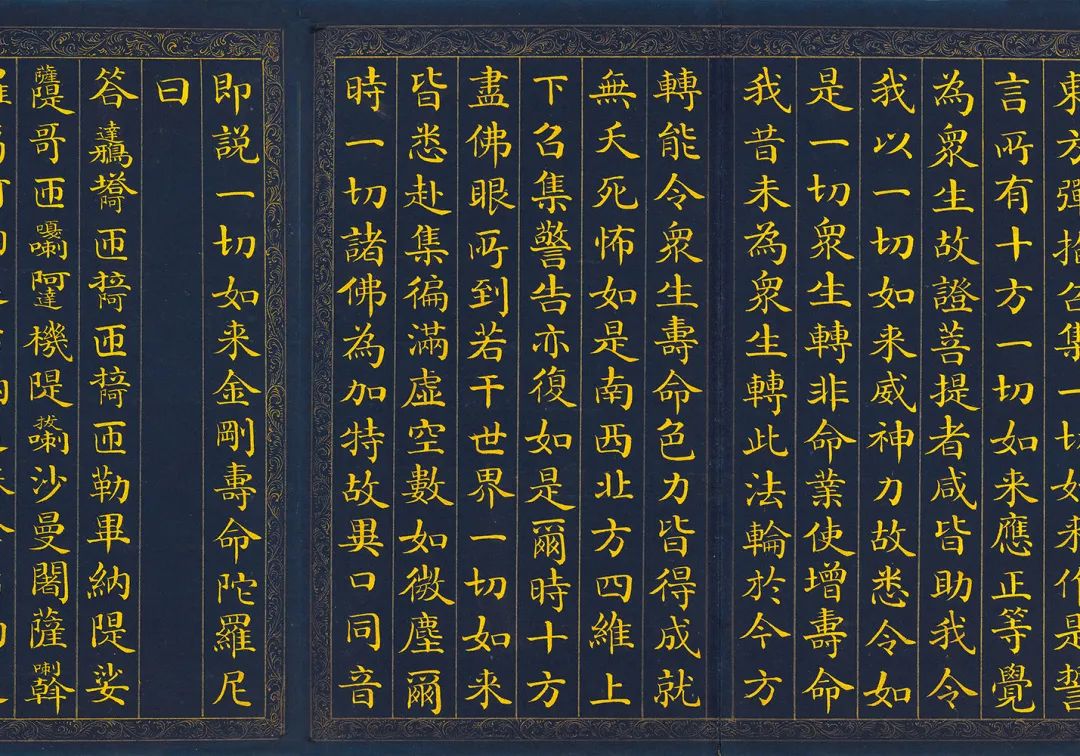 東方彈指召集一切如来作是誓
言所有十方一切如来應正等覺
為衆生故證菩提者咸皆助我令
我以一切如来威神力故悉令如
是一切衆生轉非命業使增壽命
我昔未為衆生轉此法輪於今方
轉能令衆生壽命色力皆得成就
無夭死怖如是南西北方四維上
下召集警告亦復如是爾時十方
盡佛眼所到若干世界一切如来
皆悉赴集徧滿虚空數如微塵爾
時一切諸佛為加持故異口同音
即説一切如来金剛壽命陀羅尼
曰
答達匝匝匝勒畢納隄娑
薩隄哥匝嘎喇阿達機隄拔喇沙曼闍薩喇斡